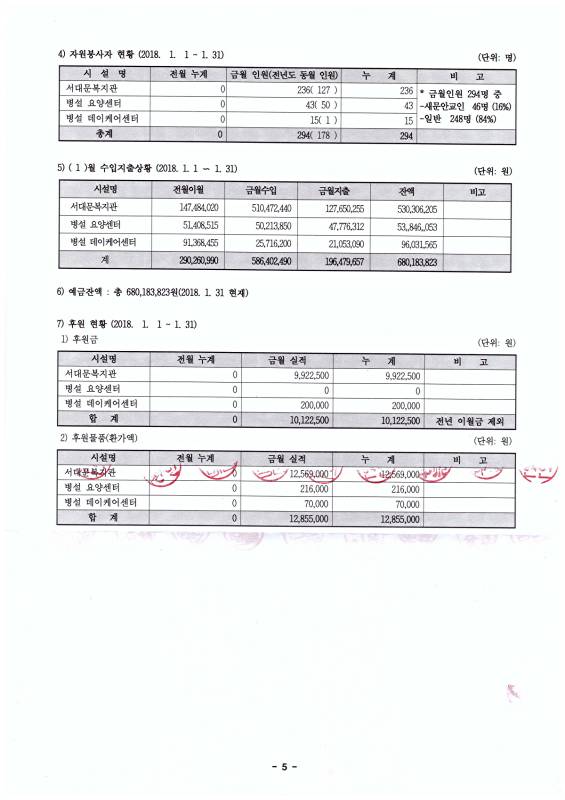 4) 자원봉사자 현황 (2018. 1. 1 - 1. 31) (단위: 명)
시 설 명 전월 누계 금월 인원(전년도 동월 인원) 누 계 비 고
서대문복지관 0 236( 127 ) 236 * 금월인원 294명 중
병설 요양센터 0 43( 50 ) 43 -새문안교인 46명 (16%)
병설 데이케어센터 0 15( 1 ) 15 -일반 248명 (84%)
총계 0 294( 178 ) 294
5) ( 1 )월 수입지출상황 (2018. 1. 1 ~ 1. 31) (단위: 원)
시설명 전월이월 금월수입 금월지출 잔액 비고
서대문복지관 147,484,020 510,472,440 127,650,255 530,306,205
병설 요양센터 51,408,515 50,213,850 47,776,312 53,,846,,053
병설 데이케어센터 91,368,455 25,716,200 21,053,090 96,031,565
계 290,260,990 586,402,490 196,479,657 680,183,823
6) 예금잔액 : 총 680,183,823원(2018. 1. 31 현재)
7) 후원 현황 (2018. 1. 1 - 1. 31)
1) 후원금 (단위: 원)
시설명 전월 누계 금월 실적 누 계 비 고
서대문복지관 0 9,922,500 9,922,500
병설 요양센터 0 0 0
병설 데이케어센터 0 200,000 200,000
합 계 0 10,122,500 10,122,500 전년 이월금 제외
2) 후원물품(환가액) (단위: 원)
시설명 전월 누계 금월 실적 누 계 비 고
서대문복지관 0 12,569,000 12,569,000
병설 요양센터 0 216,000 216,000
병설 데이케어센터 0 70,000 70,000
합 계 0 12,855,000 12,855,000
- 5 -